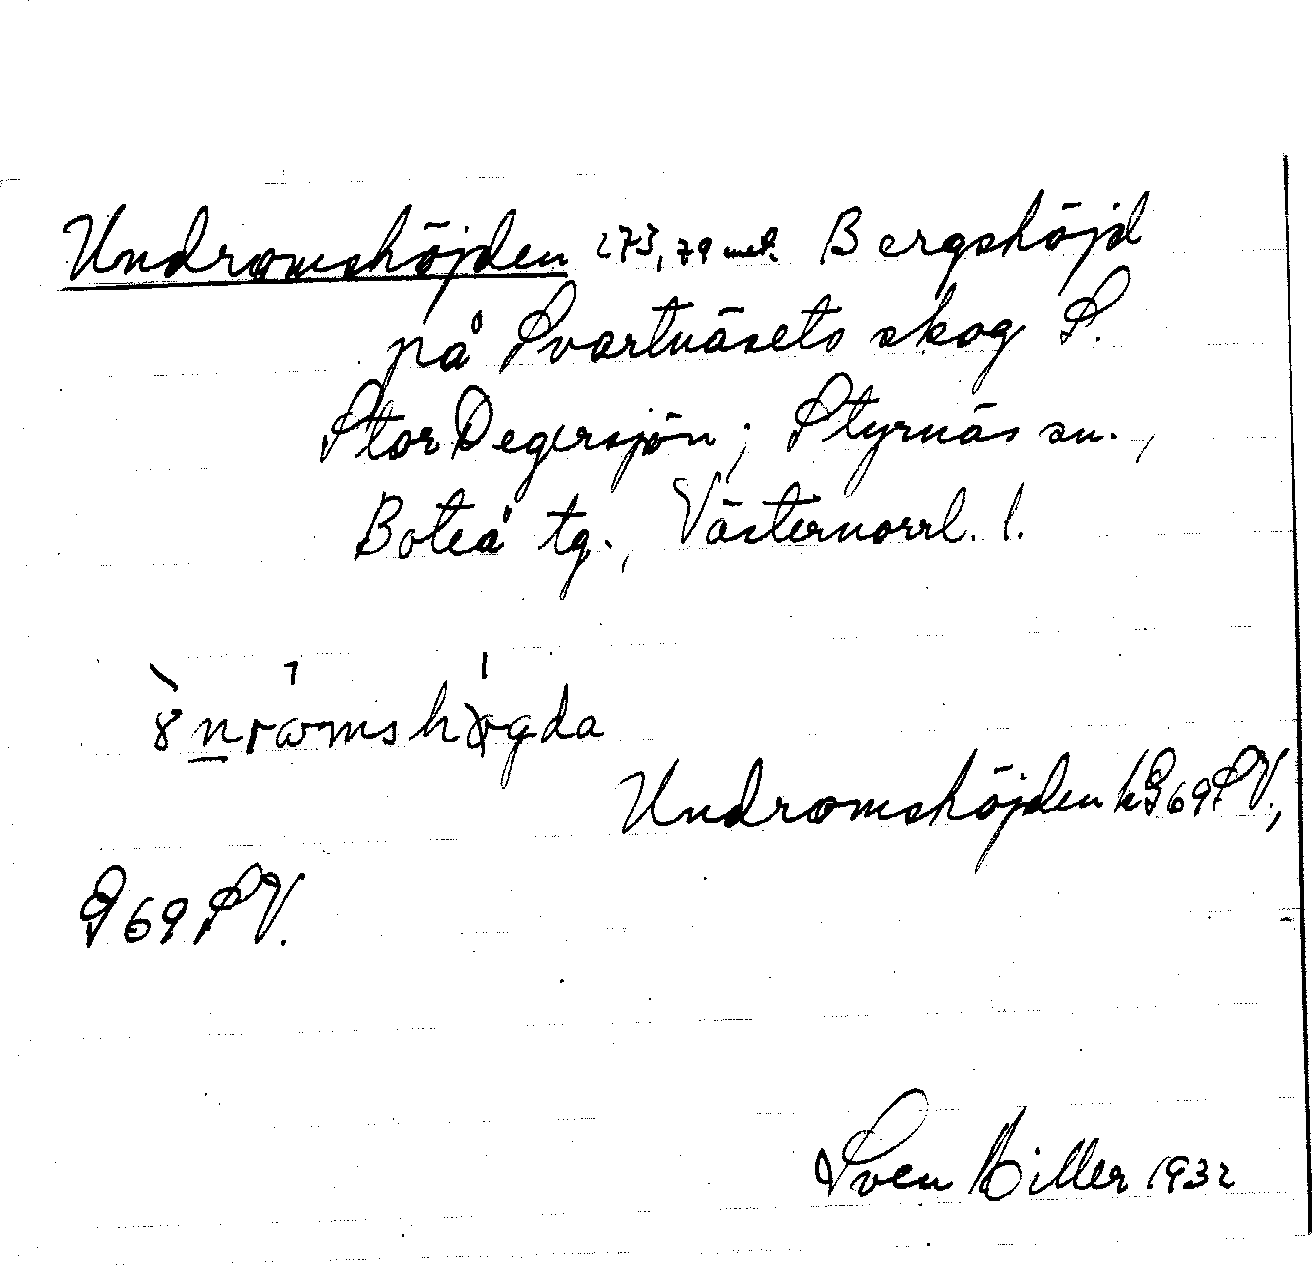 Undromshöjden 273,79 met. Bergshöjd
på Svartnäsets skog S.
Stor Degersjön; Styrnäs sn.,
Boteå tg., Västernorrl. l.
Undromshöjden k G69SV.,
G69SV.
Sven Hiller 1932